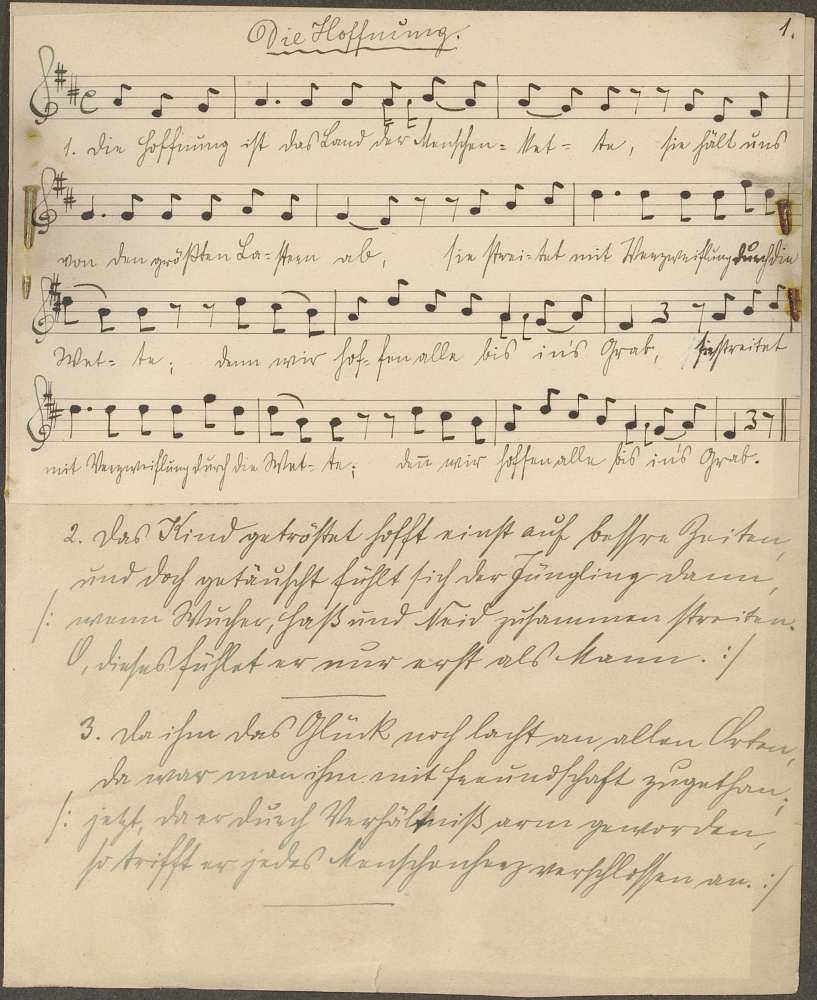 Die Hoffnung.
1.
1. Die Hoffnung ist das Land der Menschen- Ket- te, sie hält uns
von den größten La- stern ab, sie strei- tet mit Verzweiflung durch die
Wet- te; denn wir hof- fen alle bis in's Grab, sie streitet
mit Verzweiflung durch die Wet- te; deñ wir hoffen alle bis in's Grab.
2. Das Kind getröstet hofft einst auf bessre Zeiten,
und doch getäuscht fühlt sich der Jüngling dann,
/: wenn Wucher, Haß und Neid zusammen streiten.
O, dieses fühlet er nur erst als Mann. :/
3. Da ihm das Glück noch lacht an allen Orten,
da war man ihm mit Freundschaft zugethan;
/: jetzt, da er durch Verhältniß arm geworden,
so trifft er jedes Menschenherz verschlossen an. :/